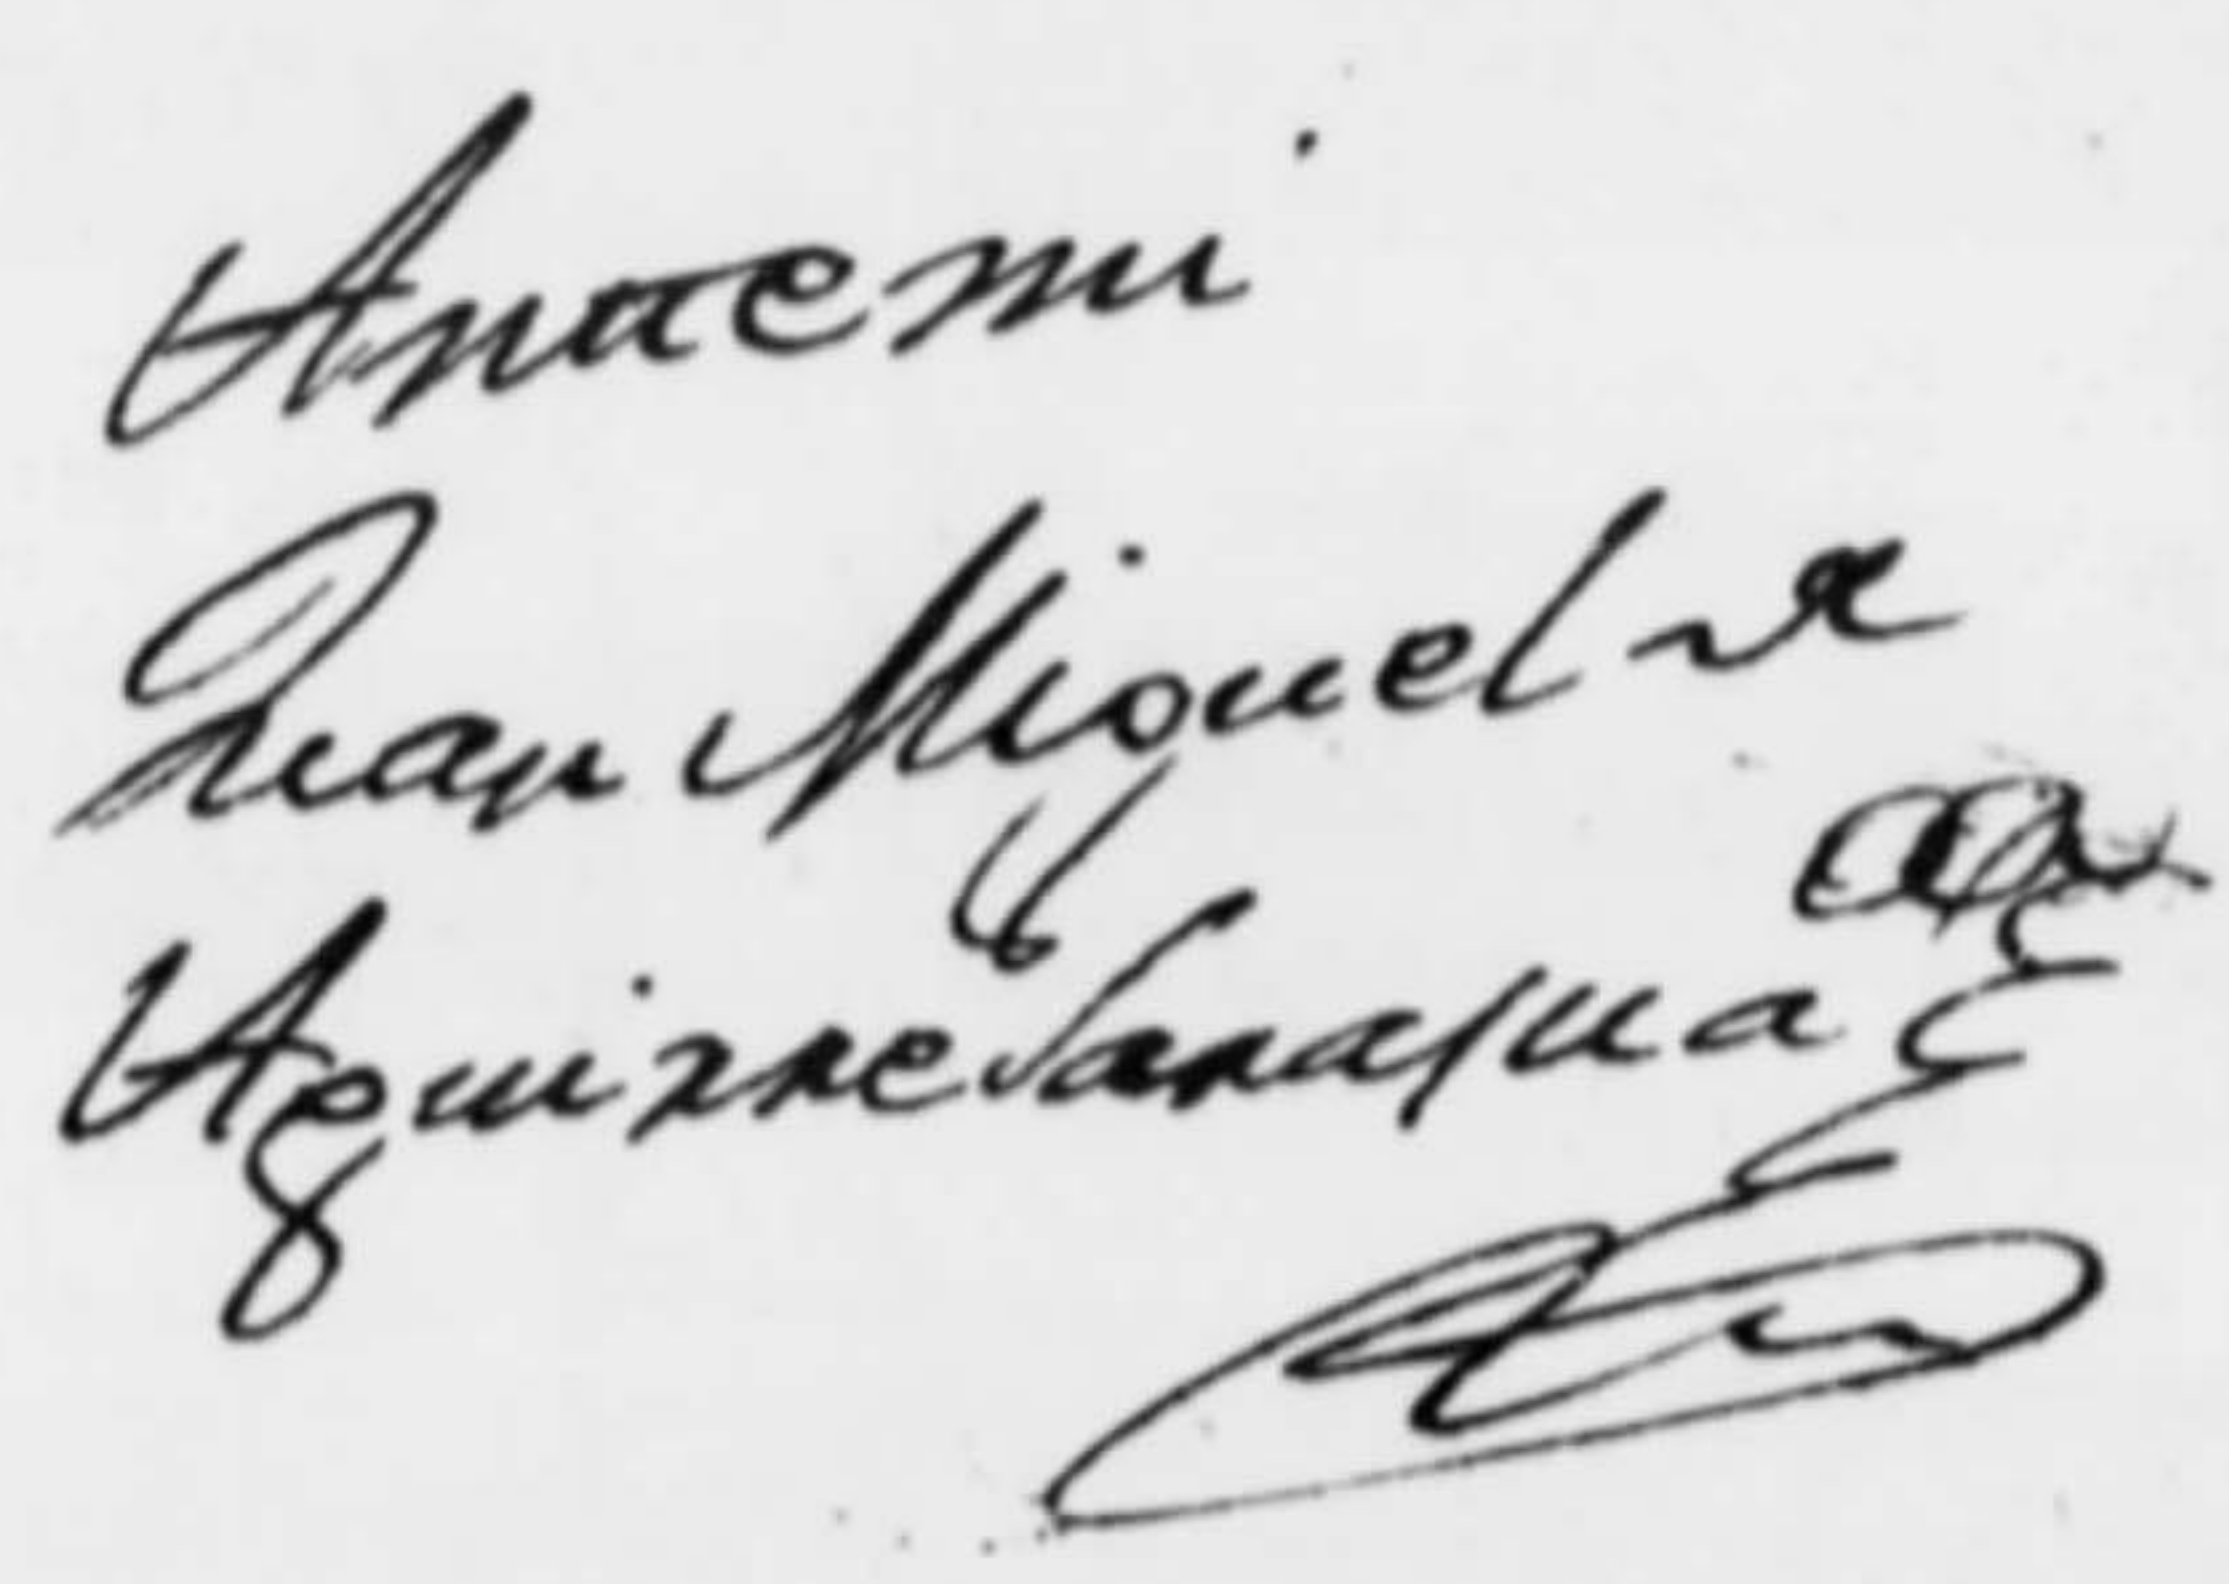 Antemi
Juan Miguel de
Aguirresarasua